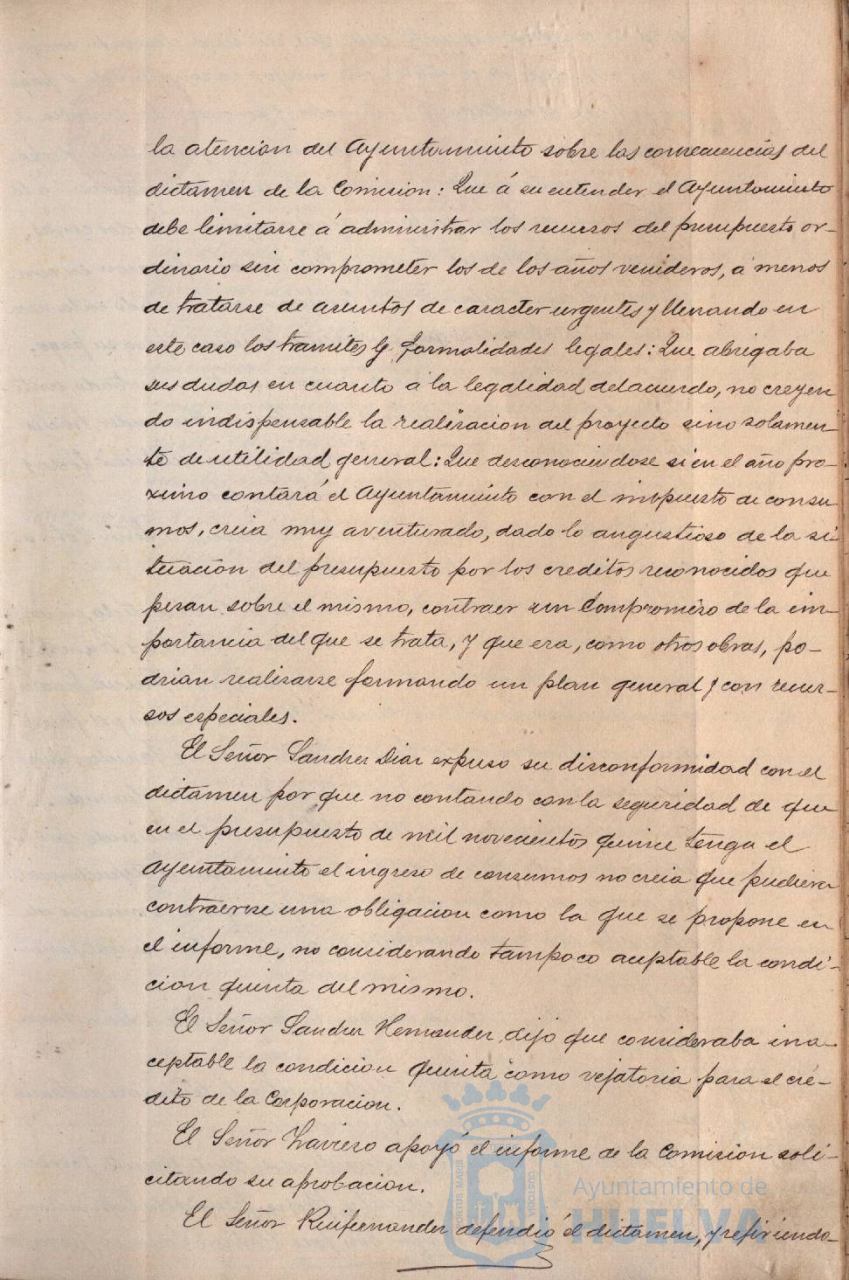 la atencion del Ayuntamiento sobre las consecuencias del
dictamen de la Comision: Que á su entender el Ayuntamiento
debe limitarse á administrar los recursos del presupuesto or-
dinario sin comprometer los de los años venideros, á menos
de tratarse de asuntos de caracter urgentes y llenando en
este caso los tramites y formalidades legales: Que abrigaba
sus dudas en cuanto á la legalidad del acuerdo, no creyen
do indispensable la realisacion del proyecto sino solamen
te de utilidad general: Que desconociendose si en el año pro-
ximo contará el Ayuntamiento con el impuesto de consu
mos, creia muy aventurado, dado lo angustioso de la si-
tuacion del presupuesto por los creditos reconocidos que
pesan sobre el mismo, contraer un Compromiso de la im-
portancia del que se trata, y que era, como otras obras, po-
drian realisarse formando un plan general y con recur-
sos especiales.
El Señor Sanchez Diaz expuso su disconformidad con el
dictamen por que no contando con la seguridad de que
en el presupuesto de mil novecientos quince tenga el
Ayuntamiento el ingreso de consumos no creia que pudiera
contraerse una obligacion como la que se propone en
el informe, no considerando tampoco aceptable la condi-
cion quinta del mismo.
El Señor Sanchez Hernandez dijo que consideraba ina-
ceptable la condicion quinta como vejatoria para el cré-
dito de la Corporacion.
El Señor apoyó el informe de la Comision soli-
citando su aprobacion.
El Señor Ruifernandez defendió el dictamen, y refiriendo-
Ayuntamiento de
HUELVA